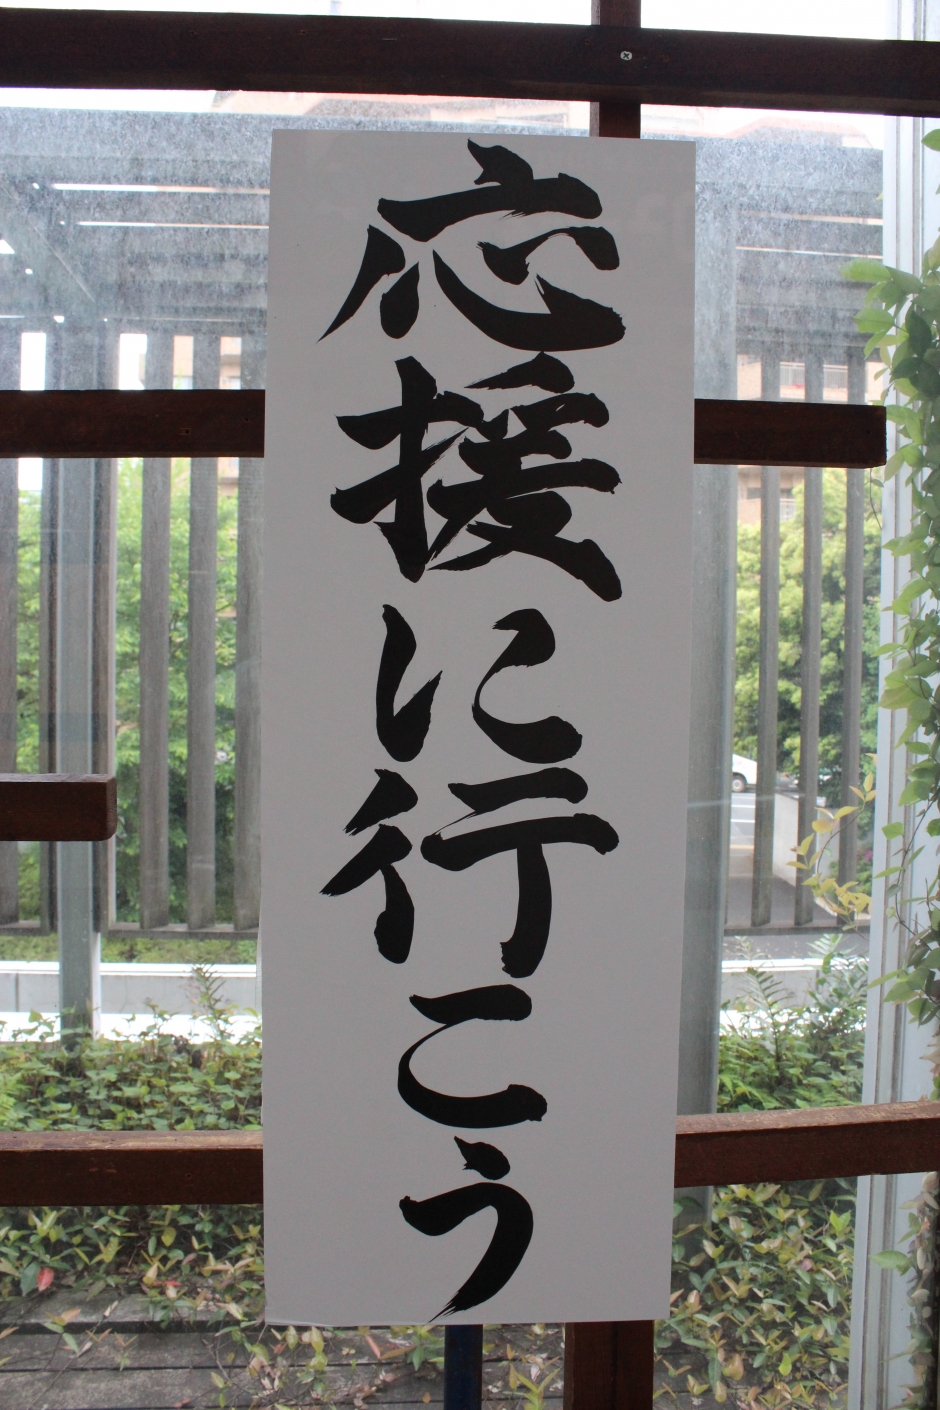 応援に行こう